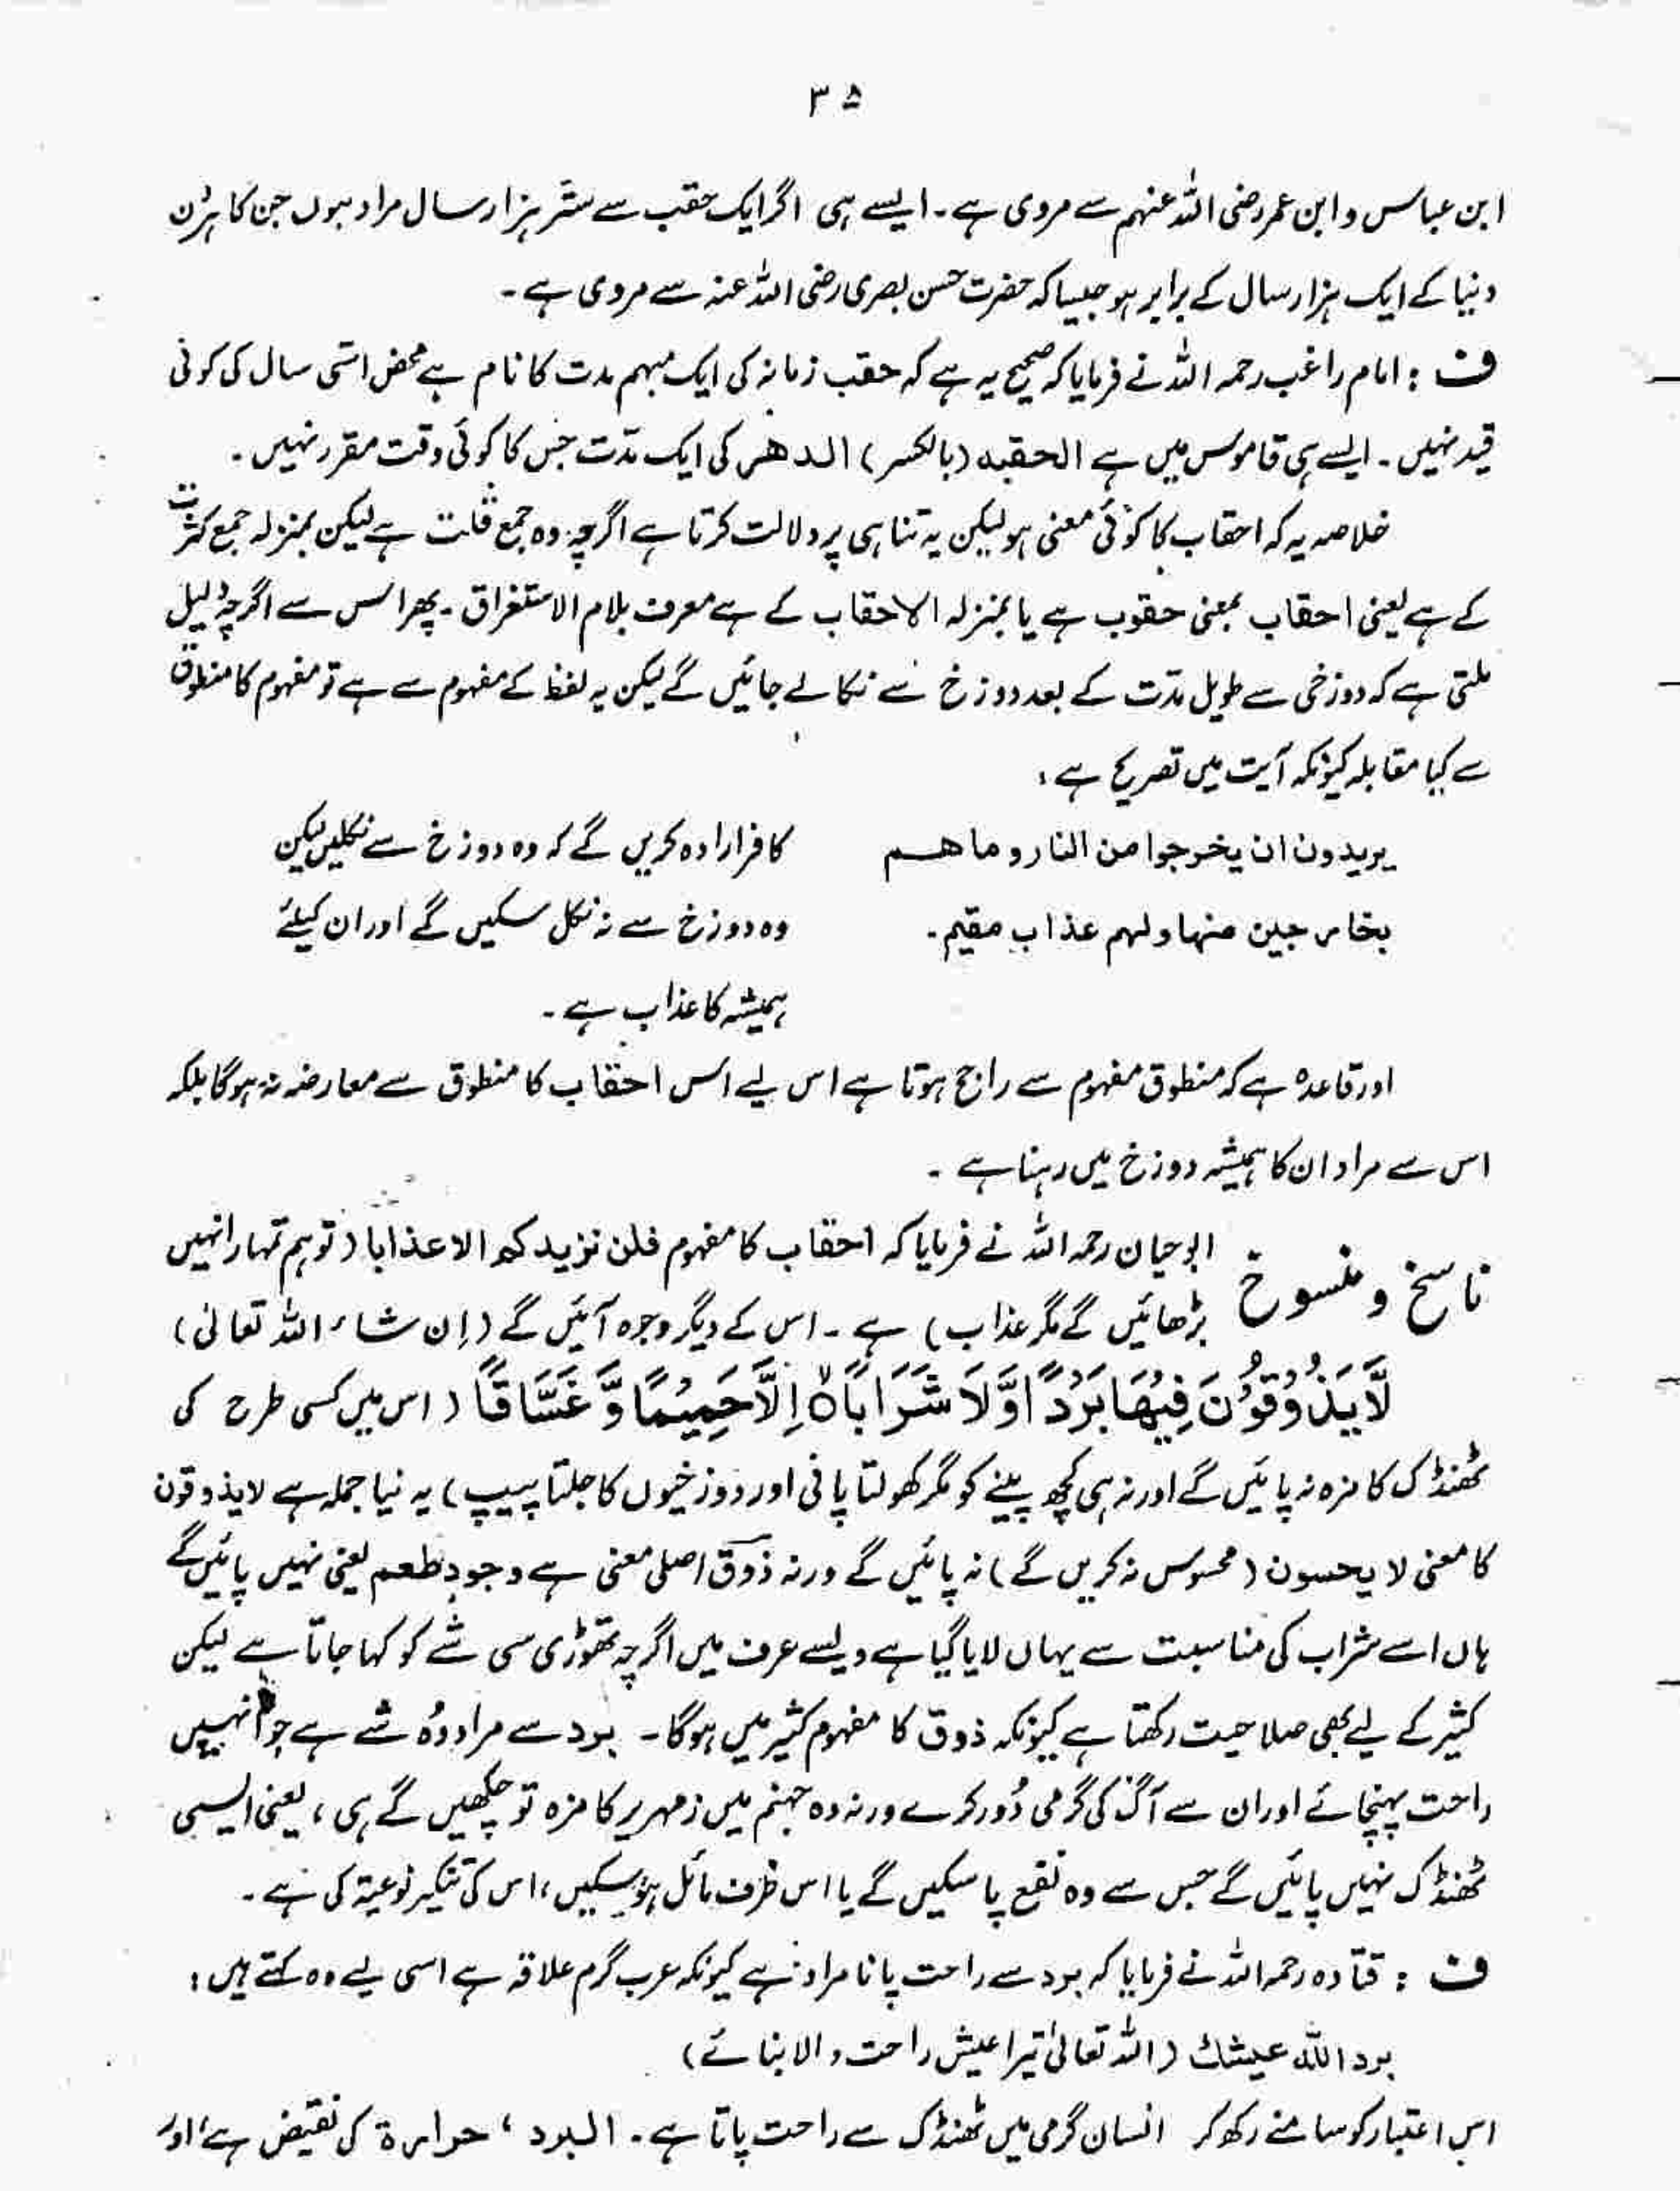 ۳۵
ابن عباس و ابن عمر رضی اللہ عنہم سے مروی ہے۔ ایسے ہی اگر ایک حقب سے ستّر ہزار سال مراد ہوں جن کا ہر دن
دنیا کے ایک ہزار سال کے برابر ہو جیسا کہ حضرت حسن بصری رضی اللہ عنہ سے مروی ہے۔
ف : امام راغب رحمہ اللہ نے فرمایا کہ صحیح یہ ہے کہ حقب زمانہ کی ایک مبہم مدت کا نام ہے محض اسّی سال کی کوئی
قید نہیں۔ ایسے ہی قاموس میں ہے الحقبہ (بالکسر) الدھر کی ایک مدّت جس کا کوئی وقت مقرر نہیں۔
خلاصہ یہ کہ احقاب کا کوئی معنی ہو لیکن یہ تناہی پر دلالت کرتا ہے اگرچہ وہ جمع قلت ہے لیکن بمنزلہ جمع کثرت
کے ہے یعنی احقاب بمعنی حقوب ہے یا بمنزلہ الاحقاب کے ہے معرف بلام الاستغراق۔ پھر اس سے اگرچہ دلیل
ملتی ہے کہ دوزخی سے طویل مدّت کے بعد دوزخ سے نکالے جائیں گے لیکن یہ لفظ کے مفہوم سے ہے تو مفہوم کا منطوق
سے کیا مقابلہ کیونکہ آیت میں تصریح ہے :
یریدون ان یخرجوا من النار و ما ھم
کافر ارادہ کریں گے کہ وہ دوزخ سے نکلیں لیکن
بخارجین منہا ولہم عذاب مقیم۔
وہ دوزخ سے نہ نکل سکیں گے اور ان کیلئے
ہمیشہ کا عذاب ہے۔
اور قاعدہ ہے کہ منطوق مفہوم سے راجح ہوتا ہے اس لیے اس احقاب کا منطوق سے معارضہ نہ ہوگا بلکہ
اس سے مراد ان کا ہمیشہ دوزخ میں رہنا ہے۔
ناسخ و منسوخ
ابوحیان رحمہ اللہ نے فرمایا کہ احقاب کا مفہوم فلن نزیدکم الا عذابا (تو ہم تمہارا نہیں
بڑھائیں گے مگر عذاب) ہے۔ اس کے دیگر وجوہ آئیں گے (اِن شاء اللہ تعالیٰ)
لَا یَذُوْقُوْنَ فِیْهَا بَرْدًا وَّلَا شَرَابًا ۝ اِلَّا حَمِیْمًا وَّ غَسَّاقًا (اس میں کسی طرح کی
ٹھنڈک کا مزہ نہ پائیں گے اور نہ ہی کچھ پینے کو مگر کھولتا پانی اور دوزخیوں کا جلتا پیپ) یہ نیا جملہ ہے لا یذوقون
کا معنی لا یحسون (محسوس نہ کریں گے) نہ پائیں گے ورنہ ذوق اصلی معنی ہے وجود طعم یعنی نہیں پائیں گے
ہاں اسے شراب کی مناسبت سے یہاں لایا گیا ہے ویسے عرف میں اگرچہ تھوڑی سی شے کو کہا جاتا ہے لیکن
کثیر کے لیے بھی صلاحیت رکھتا ہے کیونکہ ذوق کا مفہوم کثیر میں ہوگا۔ برد سے مراد وُہ شے ہے جو انہیں
راحت پہنچائے اور ان سے آگ کی گرمی دُور کرے ورنہ وہ جہنم میں زمہریر کا مزہ تو چکھیں گے ہی، یعنی ایسی
ٹھنڈک نہیں پائیں گے جس سے وہ نفع پا سکیں گے یا اس طرف مائل ہو سکیں، اس کی تنکیر نوعیۃ کی ہے۔
ف : قتادہ رحمہ اللہ نے فرمایا کہ برد سے راحت پانا مراد ہے کیونکہ عرب گرم علاقہ ہے اسی لیے وہ کہتے ہیں :
برد اللہ عیشك (اللہ تعالیٰ تیرا عیش راحت والا بنائے)
اس اعتبار کو سامنے رکھ کر انسان گرمی میں ٹھنڈک سے راحت پاتا ہے۔ البرد ، حرارۃ کی نقیض ہے اور